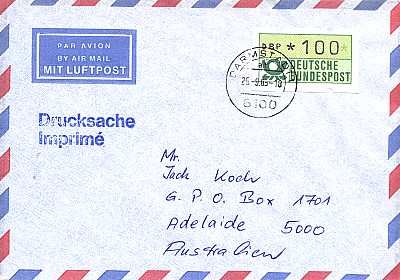 PAR AVION
BY AIR MAIL
MIT LUFTPOST
DBP *100*
DEUTSCHE
BUNDESPOST
DARMST
6100
Drucksache
Imprimé
Mr.
Jack Koch
G. P. O. Box 1701
Adelaide 5000
Australien